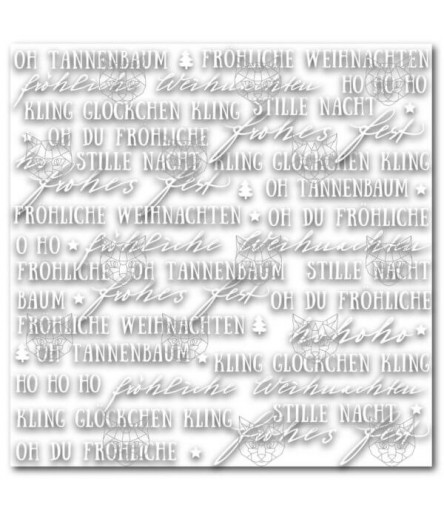 OH TANNENBAUM FRÖHLICHE WEIHNACHTEN
fröhliche Weihnachten HO HO HO
KLING GLÖCKCHEN KLING STILLE NACHT
OH DU FRÖHLICHE frohes fest
ho STILLE NACHT KLING GLÖCKCHEN KLING
frohes fest OH TANNENBAUM
FRÖHLICHE WEIHNACHTEN OH DU FRÖHLICHE
O HO fröhliche Weihnachten
FRÖHLICHE OH TANNENBAUM STILLE NACHT
BAUM frohes fest OH DU FRÖHLICHE
FRÖHLICHE WEIHNACHTEN hohoho
OH TANNENBAUM KLING GLÖCKCHEN KLING
HO HO HO fröhliche Weihnachten
KLING GLÖCKCHEN KLING STILLE NACHT
OH DU FRÖHLICHE frohes fest